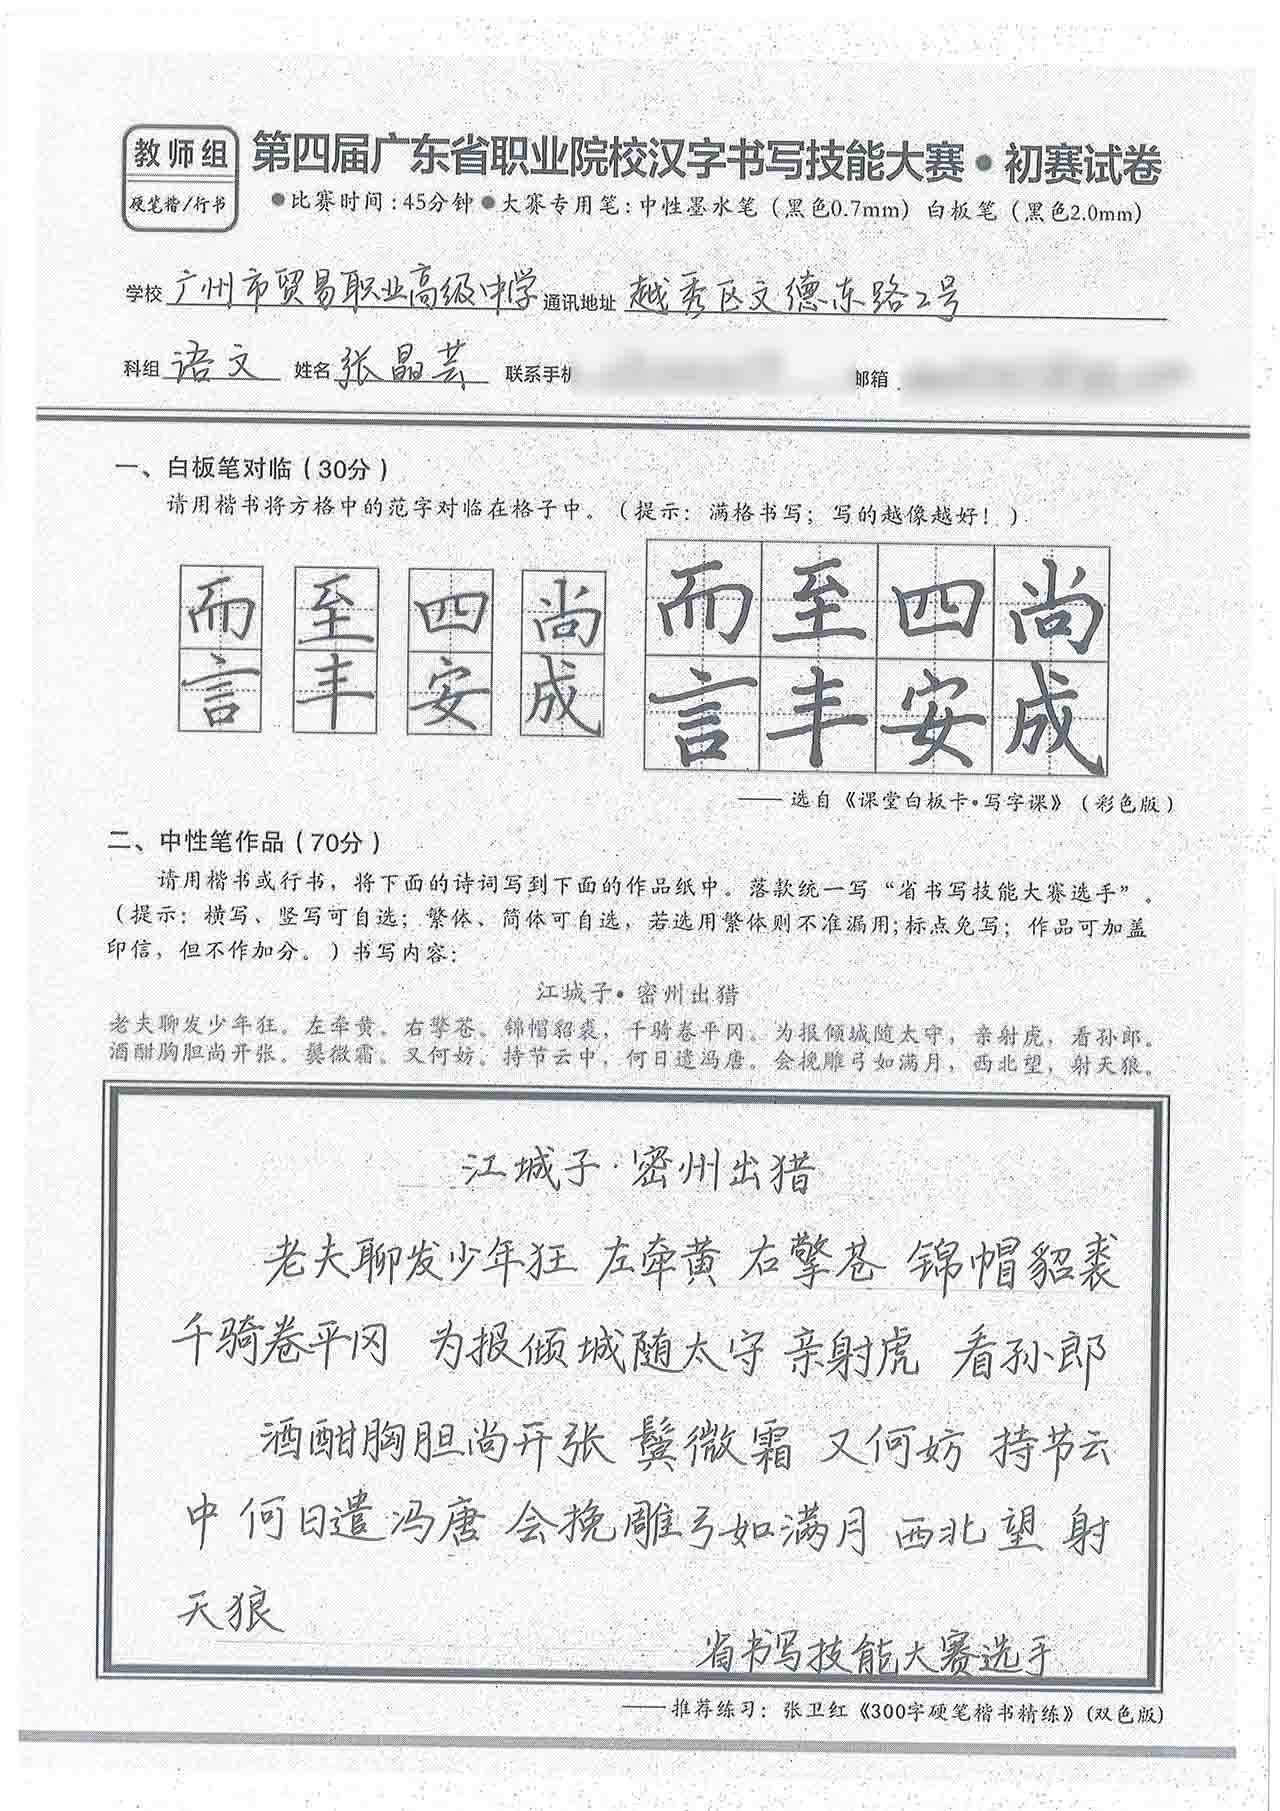 教师组
硬笔楷/行书
第四届广东省职业院校汉字书写技能大赛·初赛试卷
●比赛时间:45分钟●大赛专用笔:中性墨水笔(黑色0.7mm)白板笔(黑色2.0mm)
学校 广州市贸易职业高级中学 通讯地址 越秀区文德东路2号
科组 语文 姓名 张晶芸 联系手机 邮箱
一、白板笔对临(30分)
请用楷书将方格中的范字对临在格子中。(提示:满格书写;写的越像越好!)
而 至 四 尚 而 至 四 尚
言 丰 安 成 言 丰 安 成
——选自《课堂白板卡·写字课》(彩色版)
二、中性笔作品(70分)
请用楷书或行书,将下面的诗词写到下面的作品纸中。落款统一写“省书写技能大赛选手”。
(提示:横写、竖写可自选;繁体、简体可自选,若选用繁体则不准漏用;标点免写;作品可加盖
印信,但不作加分。)书写内容:
江城子·密州出猎
老夫聊发少年狂。左牵黄。右擎苍。锦帽貂裘,千骑卷平冈。为报倾城随太守,亲射虎,看孙郎。
酒酣胸胆尚开张。鬓微霜。又何妨。持节云中,何日遣冯唐。会挽雕弓如满月,西北望,射天狼。
江城子·密州出猎
老夫聊发少年狂 左牵黄 右擎苍 锦帽貂裘
千骑卷平冈 为报倾城随太守 亲射虎 看孙郎
酒酣胸胆尚开张 鬓微霜 又何妨 持节云
中 何日遣冯唐 会挽雕弓如满月 西北望 射
天狼
省书写技能大赛选手
——推荐练习:张卫红《300字硬笔楷书精练》(双色版)